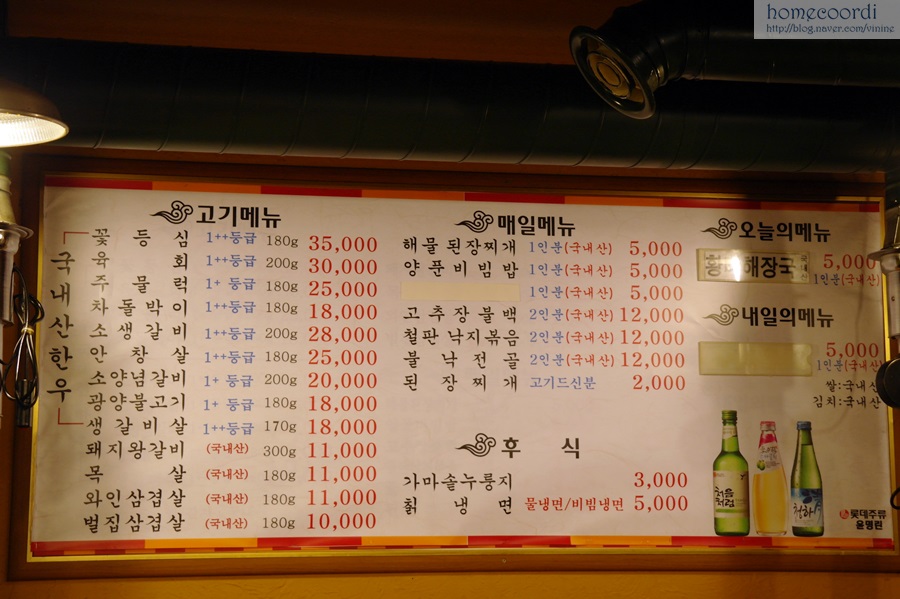 homecoordi
http://blog.naver.com/vinine
고기메뉴
국내산한우
꽃등심 1++등급 180g 35,000
육회 1++등급 200g 30,000
주물럭 1+ 등급 180g 25,000
차돌박이 1++등급 180g 18,000
소생갈비 1++등급 200g 28,000
안창살 1++등급 180g 25,000
소양념갈비 1+ 등급 200g 20,000
광양불고기 1+ 등급 180g 18,000
생갈비살 1++등급 170g 18,000
돼지왕갈비 (국내산) 300g 11,000
목살 (국내산) 180g 11,000
와인삼겹살 (국내산) 180g 11,000
벌집삼겹살 (국내산) 180g 10,000
매일메뉴
해물된장찌개 1인분(국내산) 5,000
양푼비빔밥 1인분(국내산) 5,000
1인분(국내산) 5,000
고추장불백 2인분(국내산) 12,000
철판낙지볶음 2인분(국내산) 12,000
불낙전골 2인분(국내산) 12,000
된장찌개 고기드신분 2,000
후식
가마솥누룽지 3,000
칡냉면 물냉면/비빔냉면 5,000
오늘의메뉴
해장국 국내산 5,000
1인분(국내산)
내일의메뉴
5,000
1인분(국내산
쌀:국내산
김치:국내산
처음처럼
청하
롯데주류
윤명린